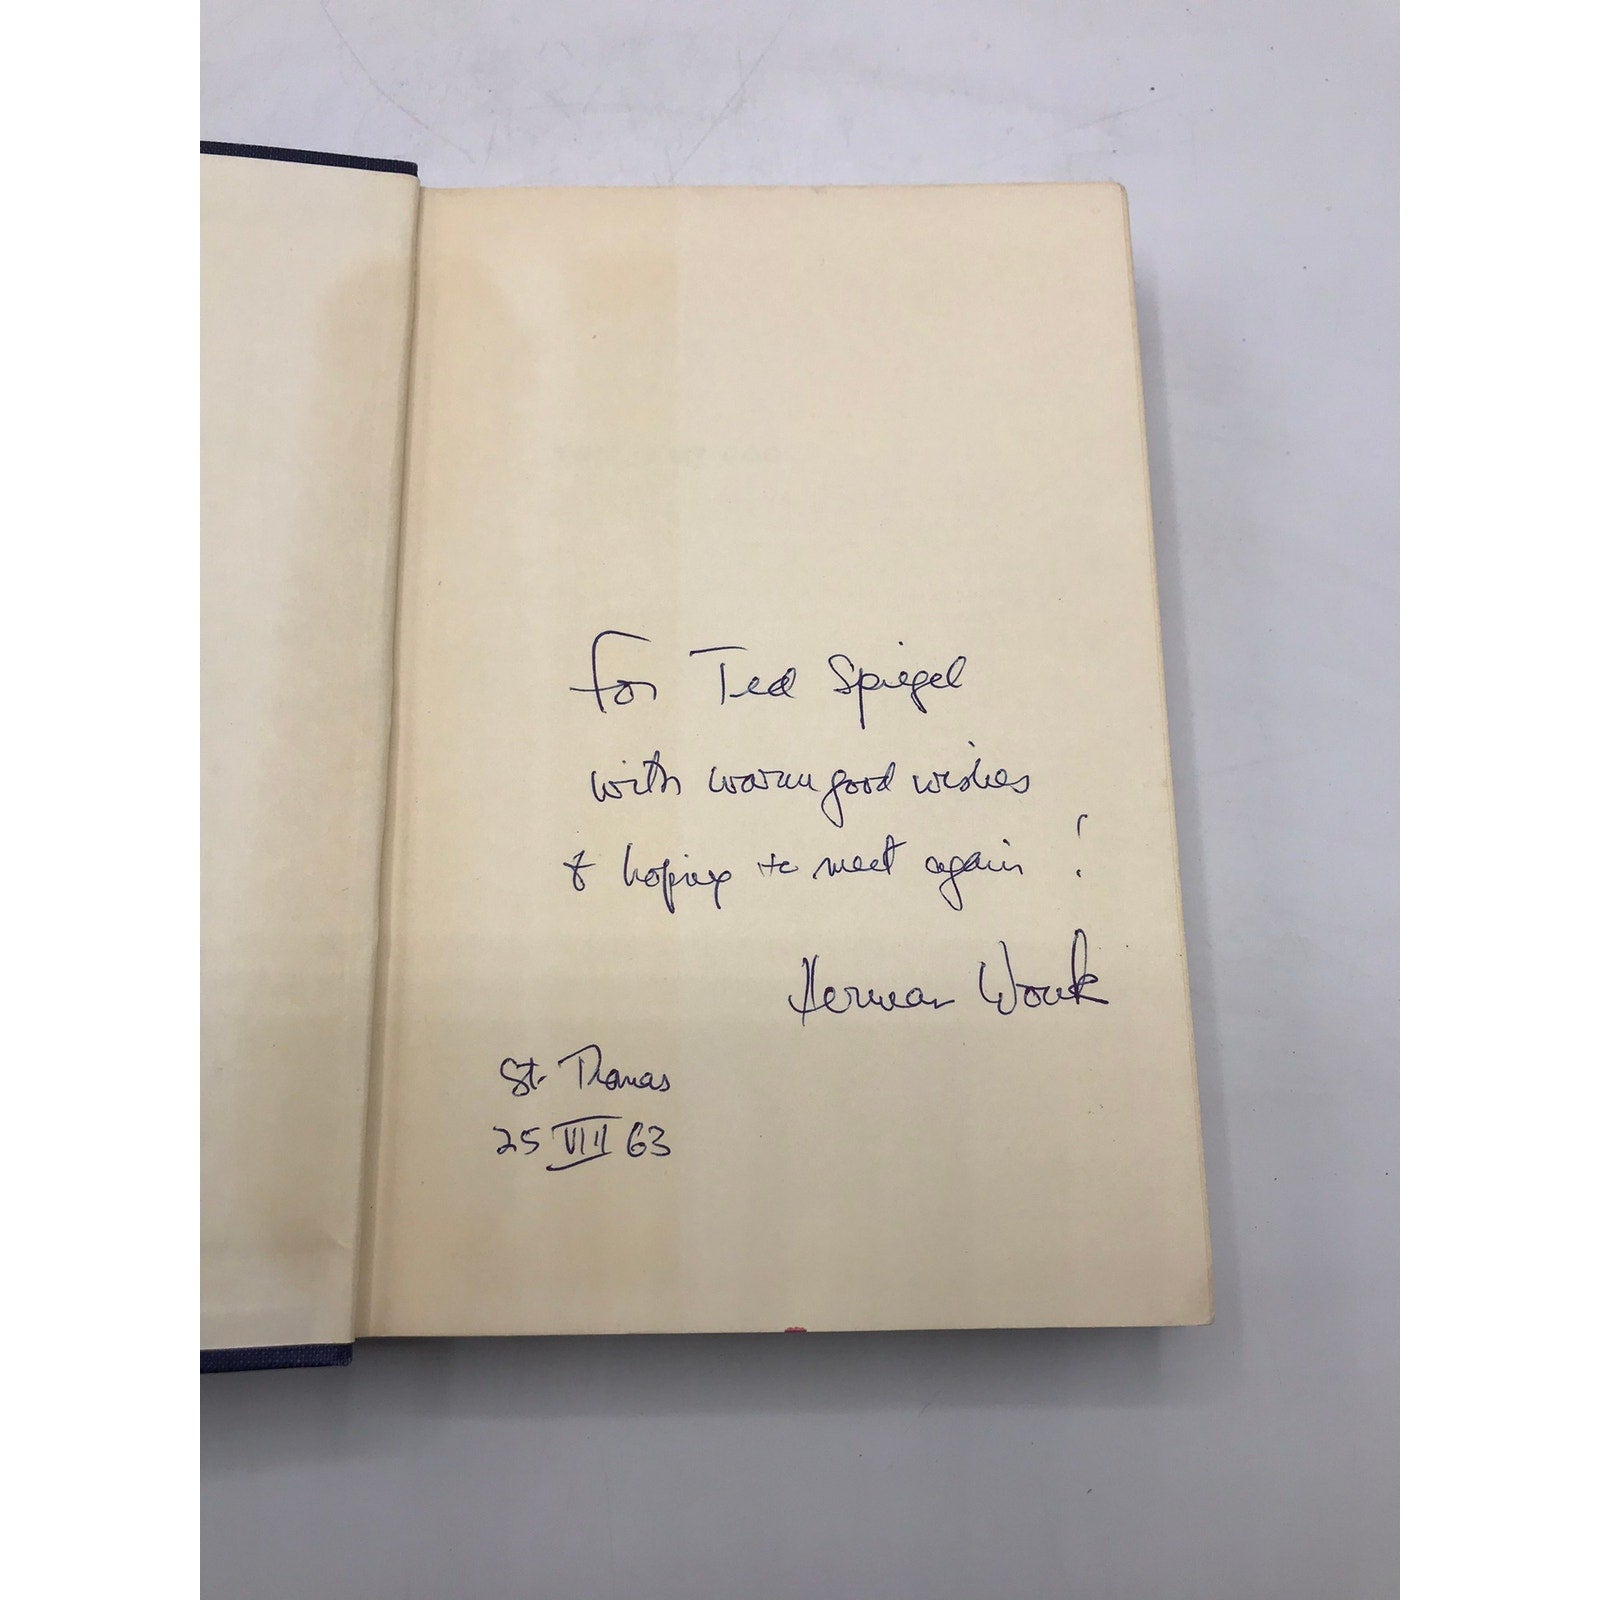 For Ted Spiegel
with warm good wishes
& hoping to meet again !
Herman Wouk
St. Thomas
25 VIII 63